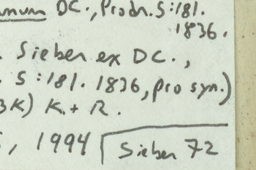 DC., Prodr. 5:181.
1836.
Sieber ex DC.,
5:181. 1836, pro syn.)
K. + R.
, 1994 Sieber 72